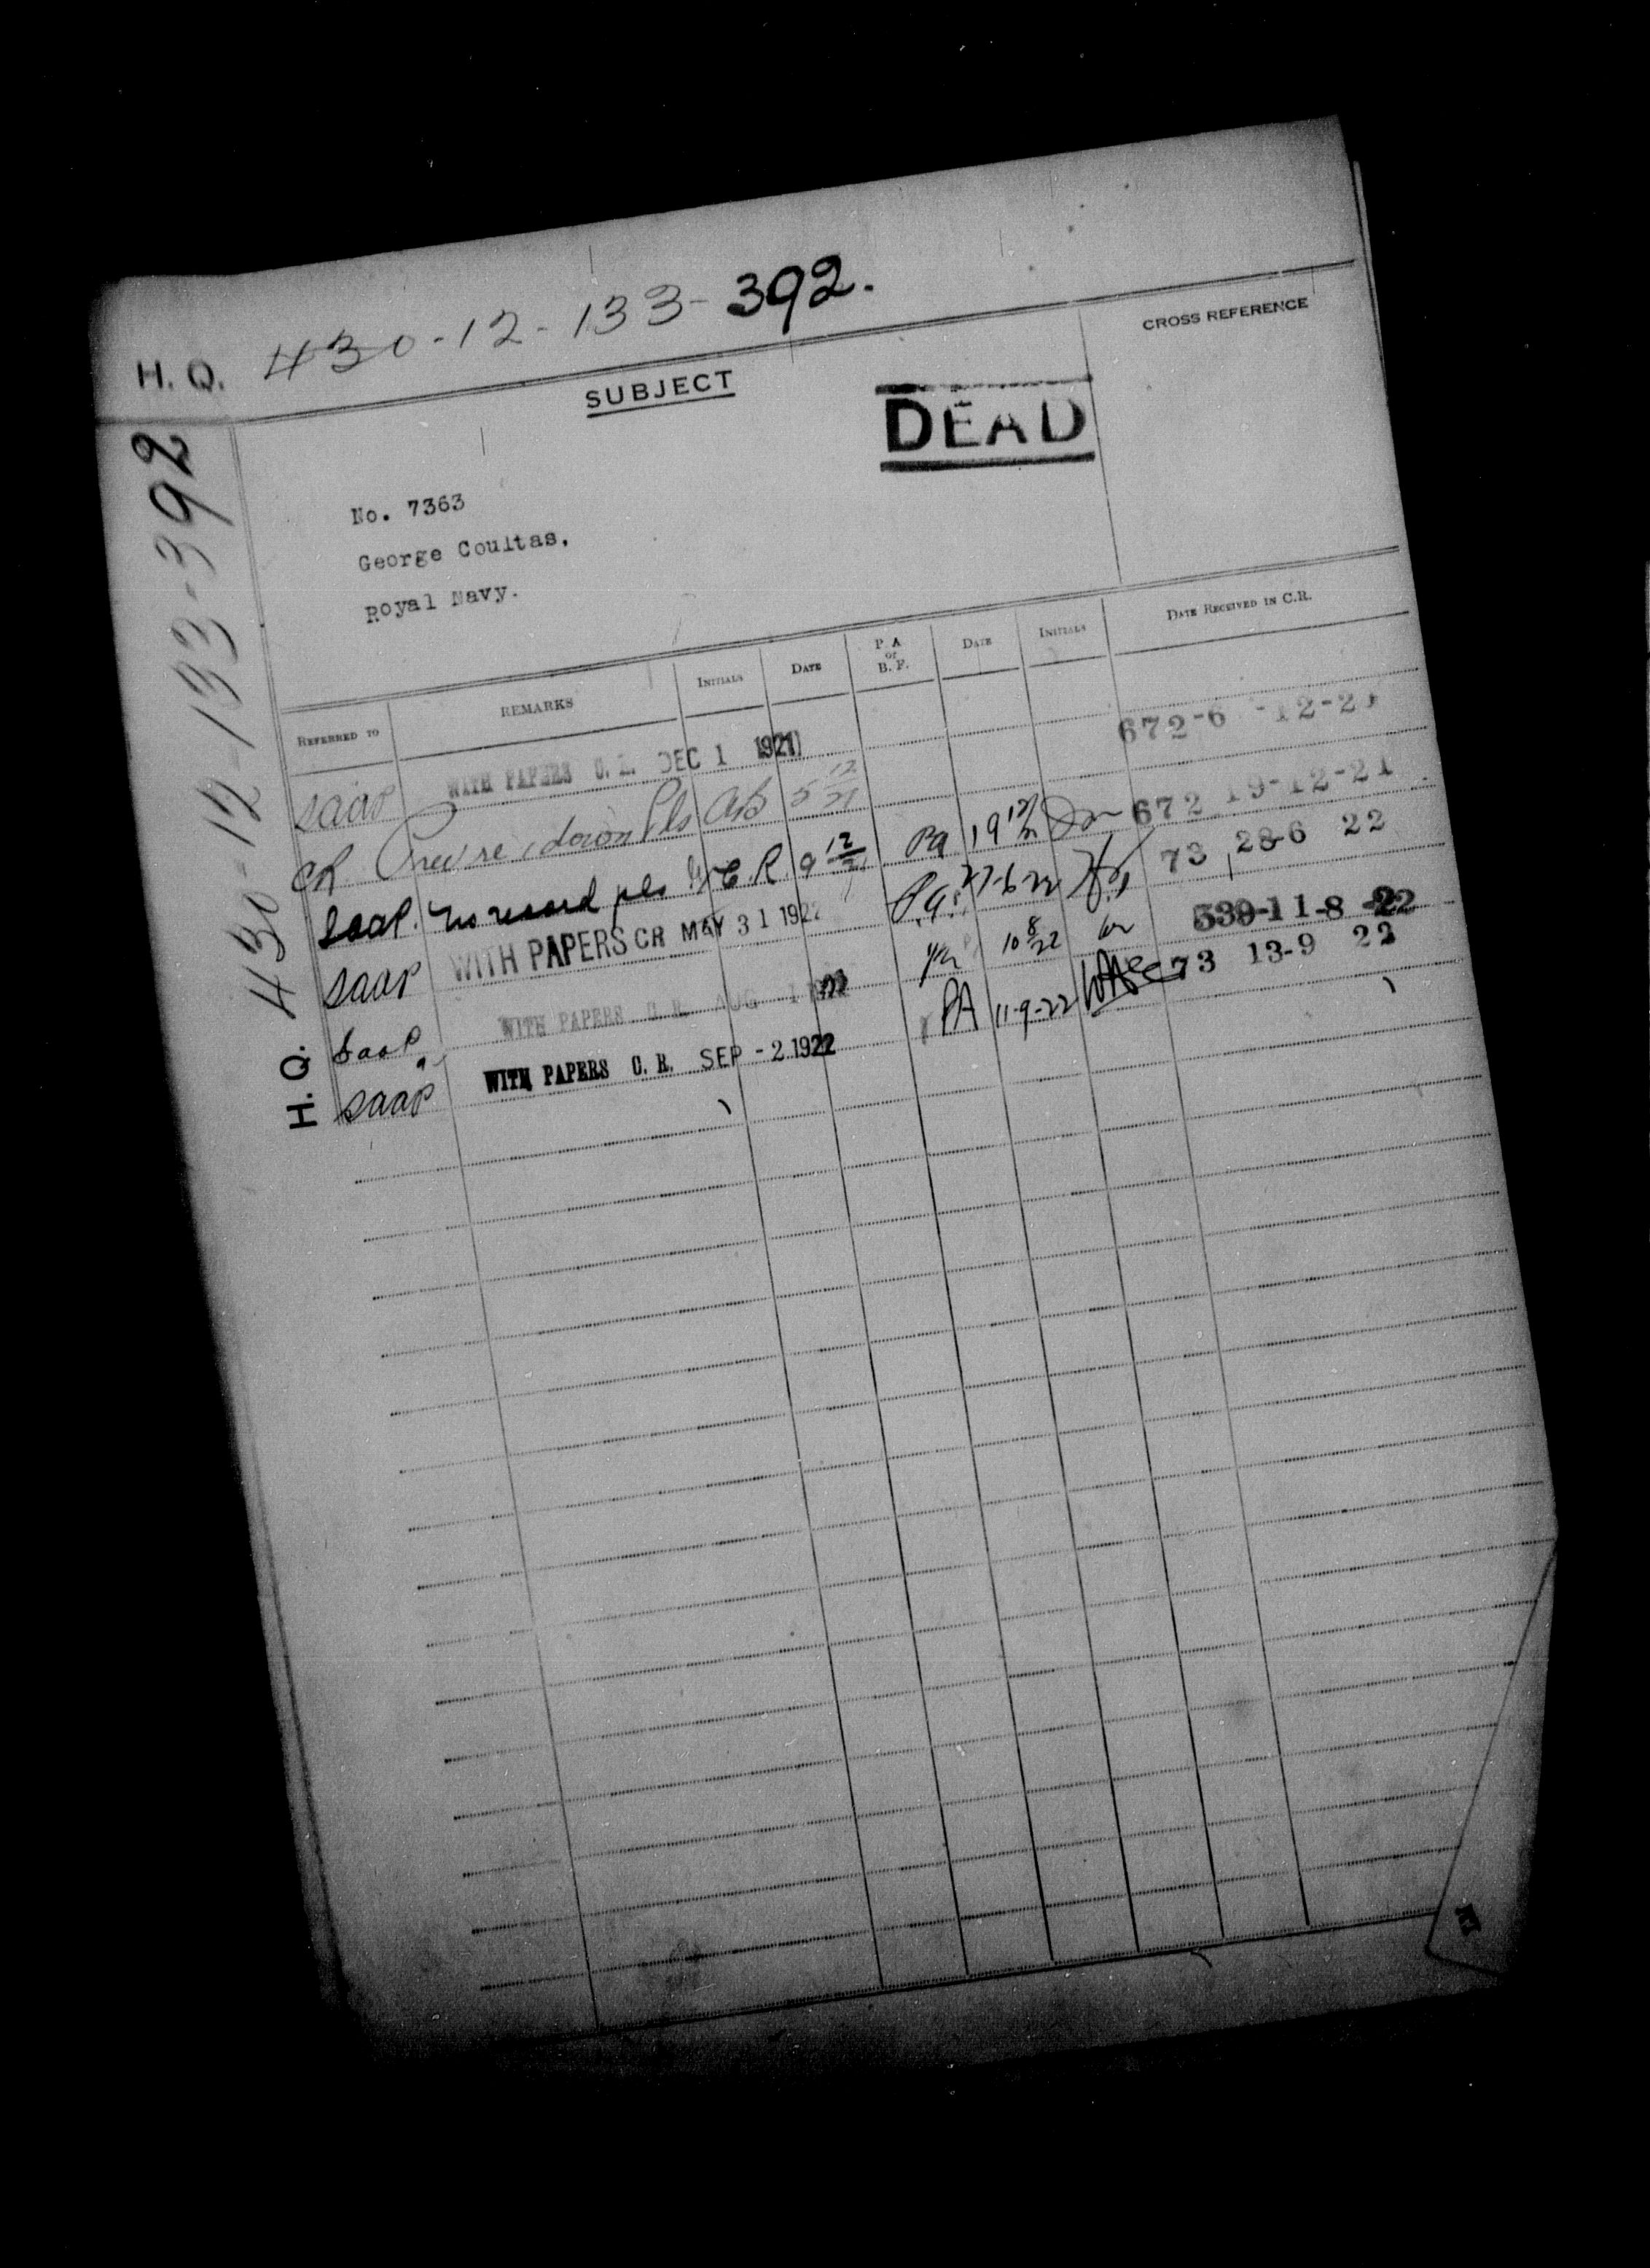 H. Q. 430-12-133-392.
SUBJECT
CROSS REFERENCE
DEAD
No. 7363
George Coultas,
Royal Navy.
H.Q. 430-12-133-392
REFERRED TO REMARKS INITIALS DATE P. A. or B. F. DATE INITIALS DATE RECEIVED IN C.R.
SAAP WITH PAPERS DEC 1 1921 672-6 -12-21
CR down Pls AB 5 12/21 672 19-12-21
SAAP. no record pls C.R. 9 12/21 PA 19 12/21 73 28-6 22
SAAP WITH PAPERS CR MAY 31 1922 P.A. 27-6-22 539-11-8-22
SAAP. WITH PAPERS C. R. AUG 10 8/22 73 13-9 22
SAAP WITH PAPERS C. R. SEP -2 1922 PA 11-9-22